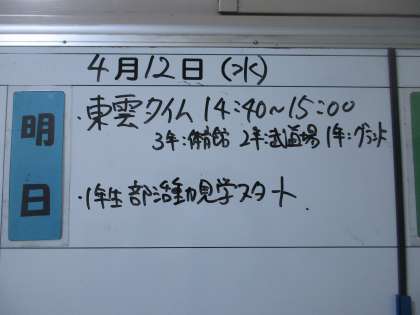 4月12日(水)
明日
・東雲タイム 14:40~15:00
3年:体育館 2年:武道場 1年:グランド
・1年生部活動見学スタート